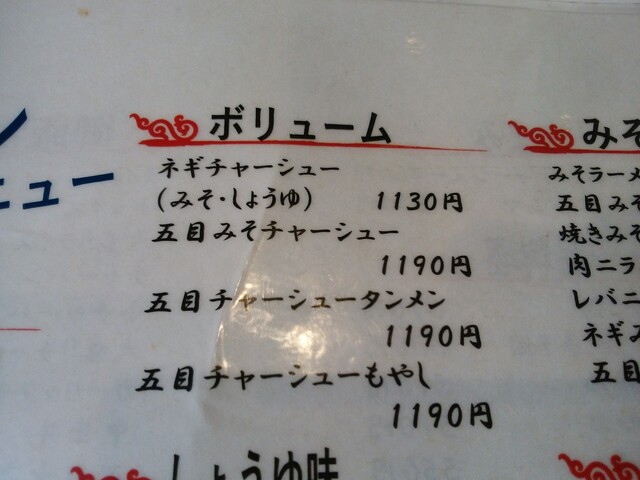 ニュー
ボリューム
ネギチャーシュー
(みそ・しょうゆ) 1130円
五目みそチャーシュー
1190円
五目チャーシュータンメン
1190円
五目チャーシューもやし
1190円
しょうゆ味
みそ
みそラーメ
五目みそ
焼きみそ
肉ニラ
レバニ
ネギみ
五目